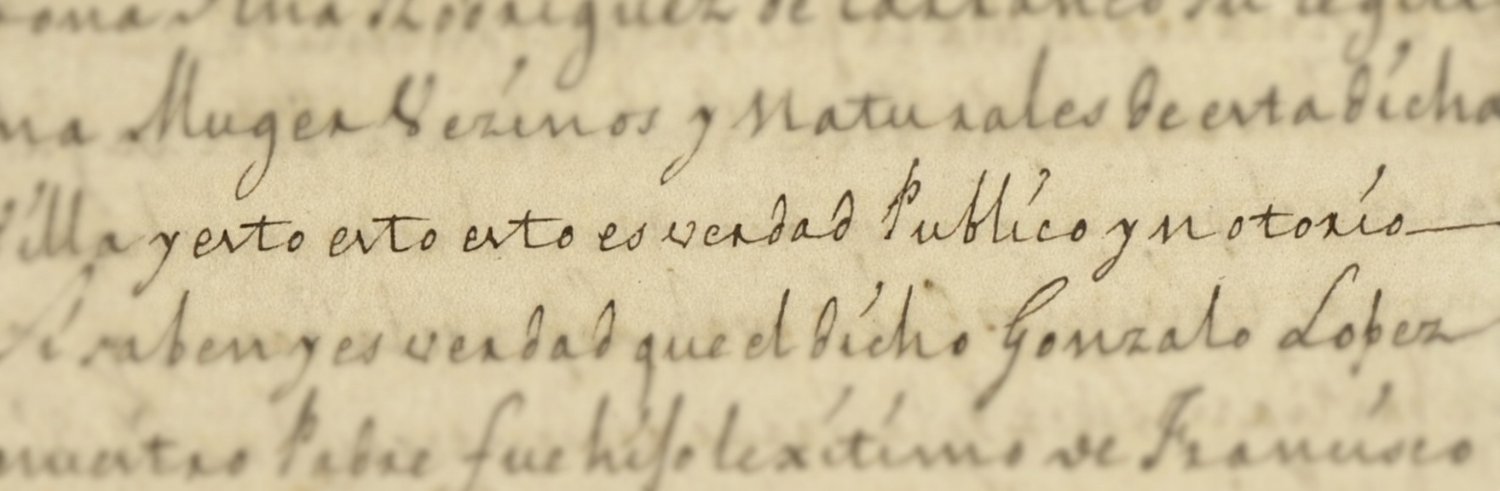 Muger Vezinos y Naturales de esta dicha
Villa y esto esto esto es verdad Publico y Notorio
Si saben y es verdad que el dicho Gonzalo Lopez
nuestro Padre fue hijo lexitimo de Francisco